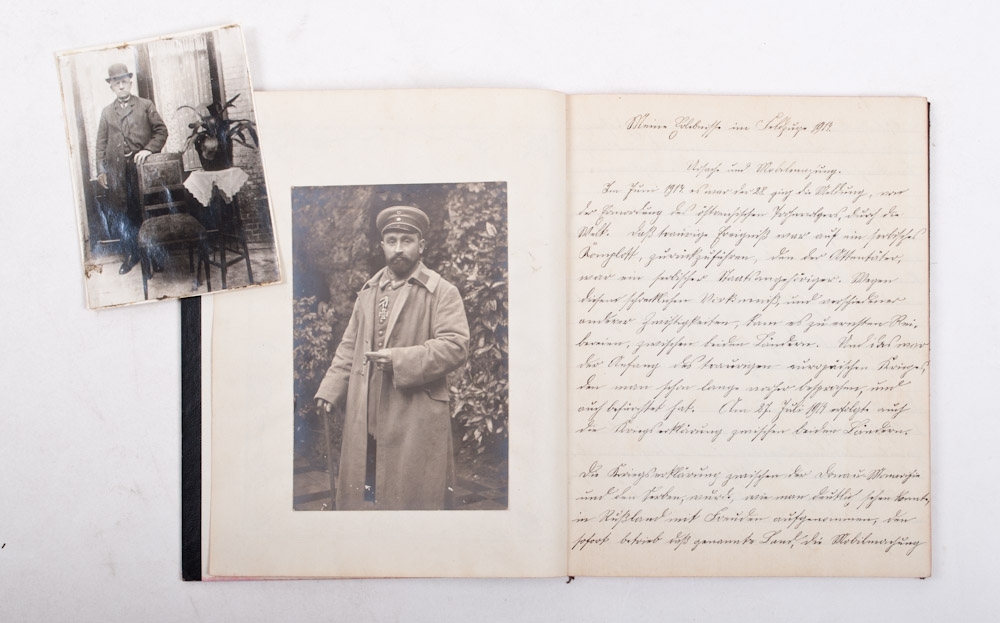 Meine Erlebnisse im Feldzuge 1914
Ursache und Mobilmachung.
Im Juni 1914 es war der 28. ging die Meldung, von
der Ermordung des östereichischen Tronfolgers, durch die
Welt. Daß traurige Ereigniß war auf ein serbisches
Komplott, zurückzuführen, den der Attentäter,
war ein serbischer Staatsangehöriger. Wegen
diesem schrecklichen und verschiedener
anderer Zwistigkeiten, kam es zu ernsten Rei-
bereien, zwischen beiden Ländern. Und das war
der Anfang des traurigen europäischen Krieges,
den man schon lange vorher besprochen, und
auch befürchtet hat. Am 27. Juli 1914 erfolgte auch
die Kriegserklärung zwischen beiden Ländern.
Die Kriegserklärung zwischen der Donau-Monarchie
und den Serben, wurde, wie man deutlich sehen konnte,
in Rußland mit Freuden aufgenommen, den
sofort betrieb daß genannte Land, die Mobilmachung